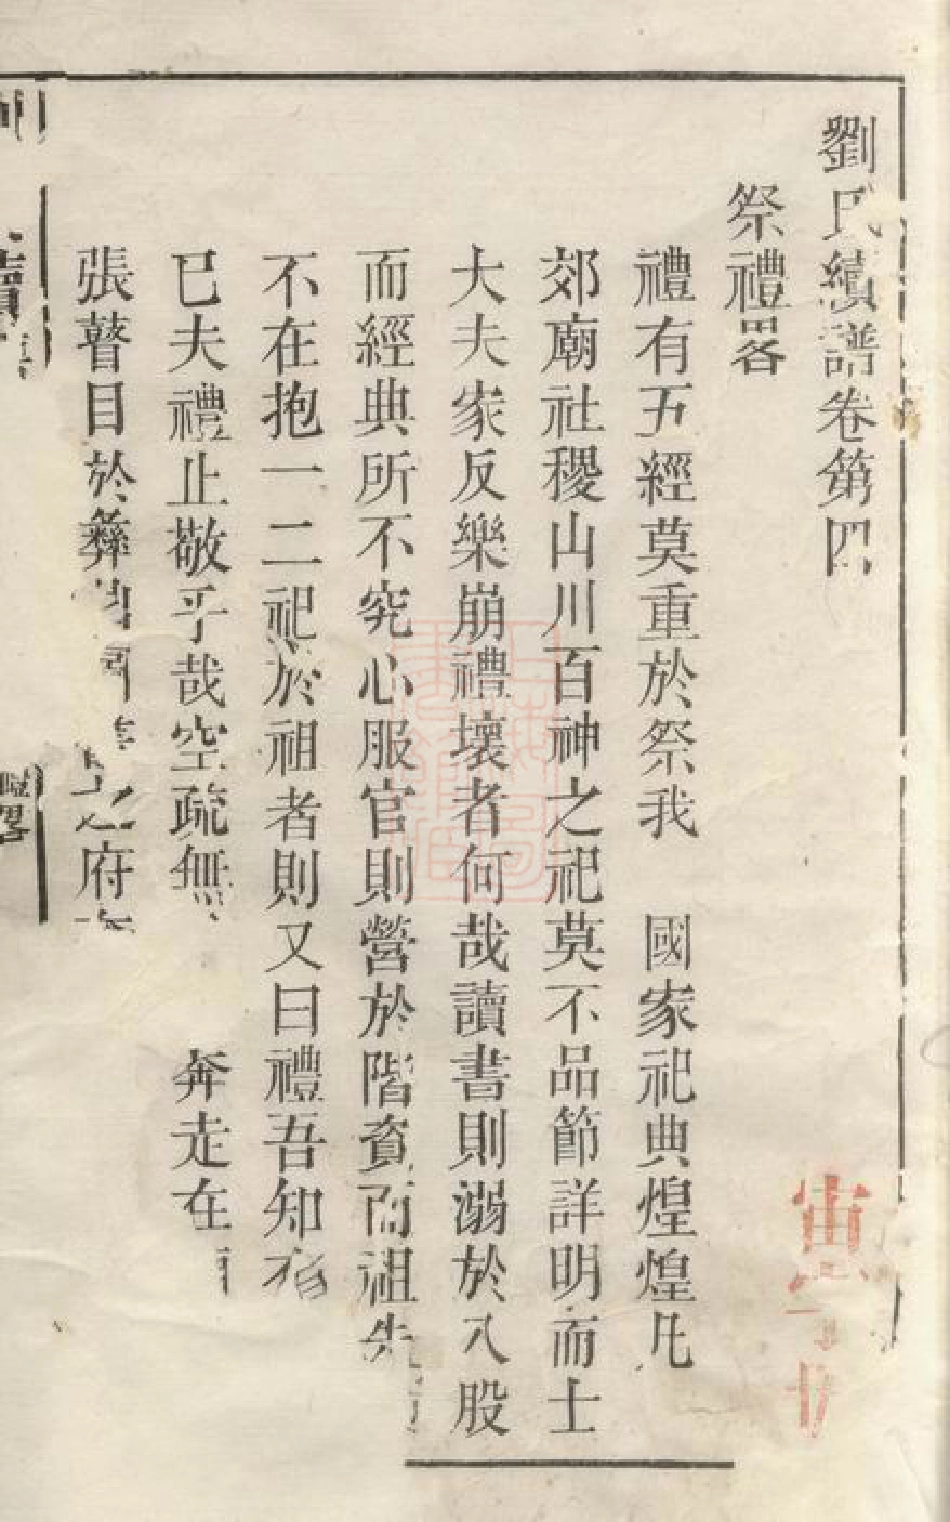 劉氏續譜卷第四
祭禮畧
禮有五經莫重於祭我 國家祀典煌煌凡
郊廟社稷山川百神之祀莫不品節詳明而士
大夫家反樂崩禮壞者何哉讀書則溺於八股
而經典所不究心服官則營於階資而祖先
不在抱一二祀於祖者則又曰禮吾知
已夫禮止敬乎哉空疏無 奔走在
張瞽目於彝 之府